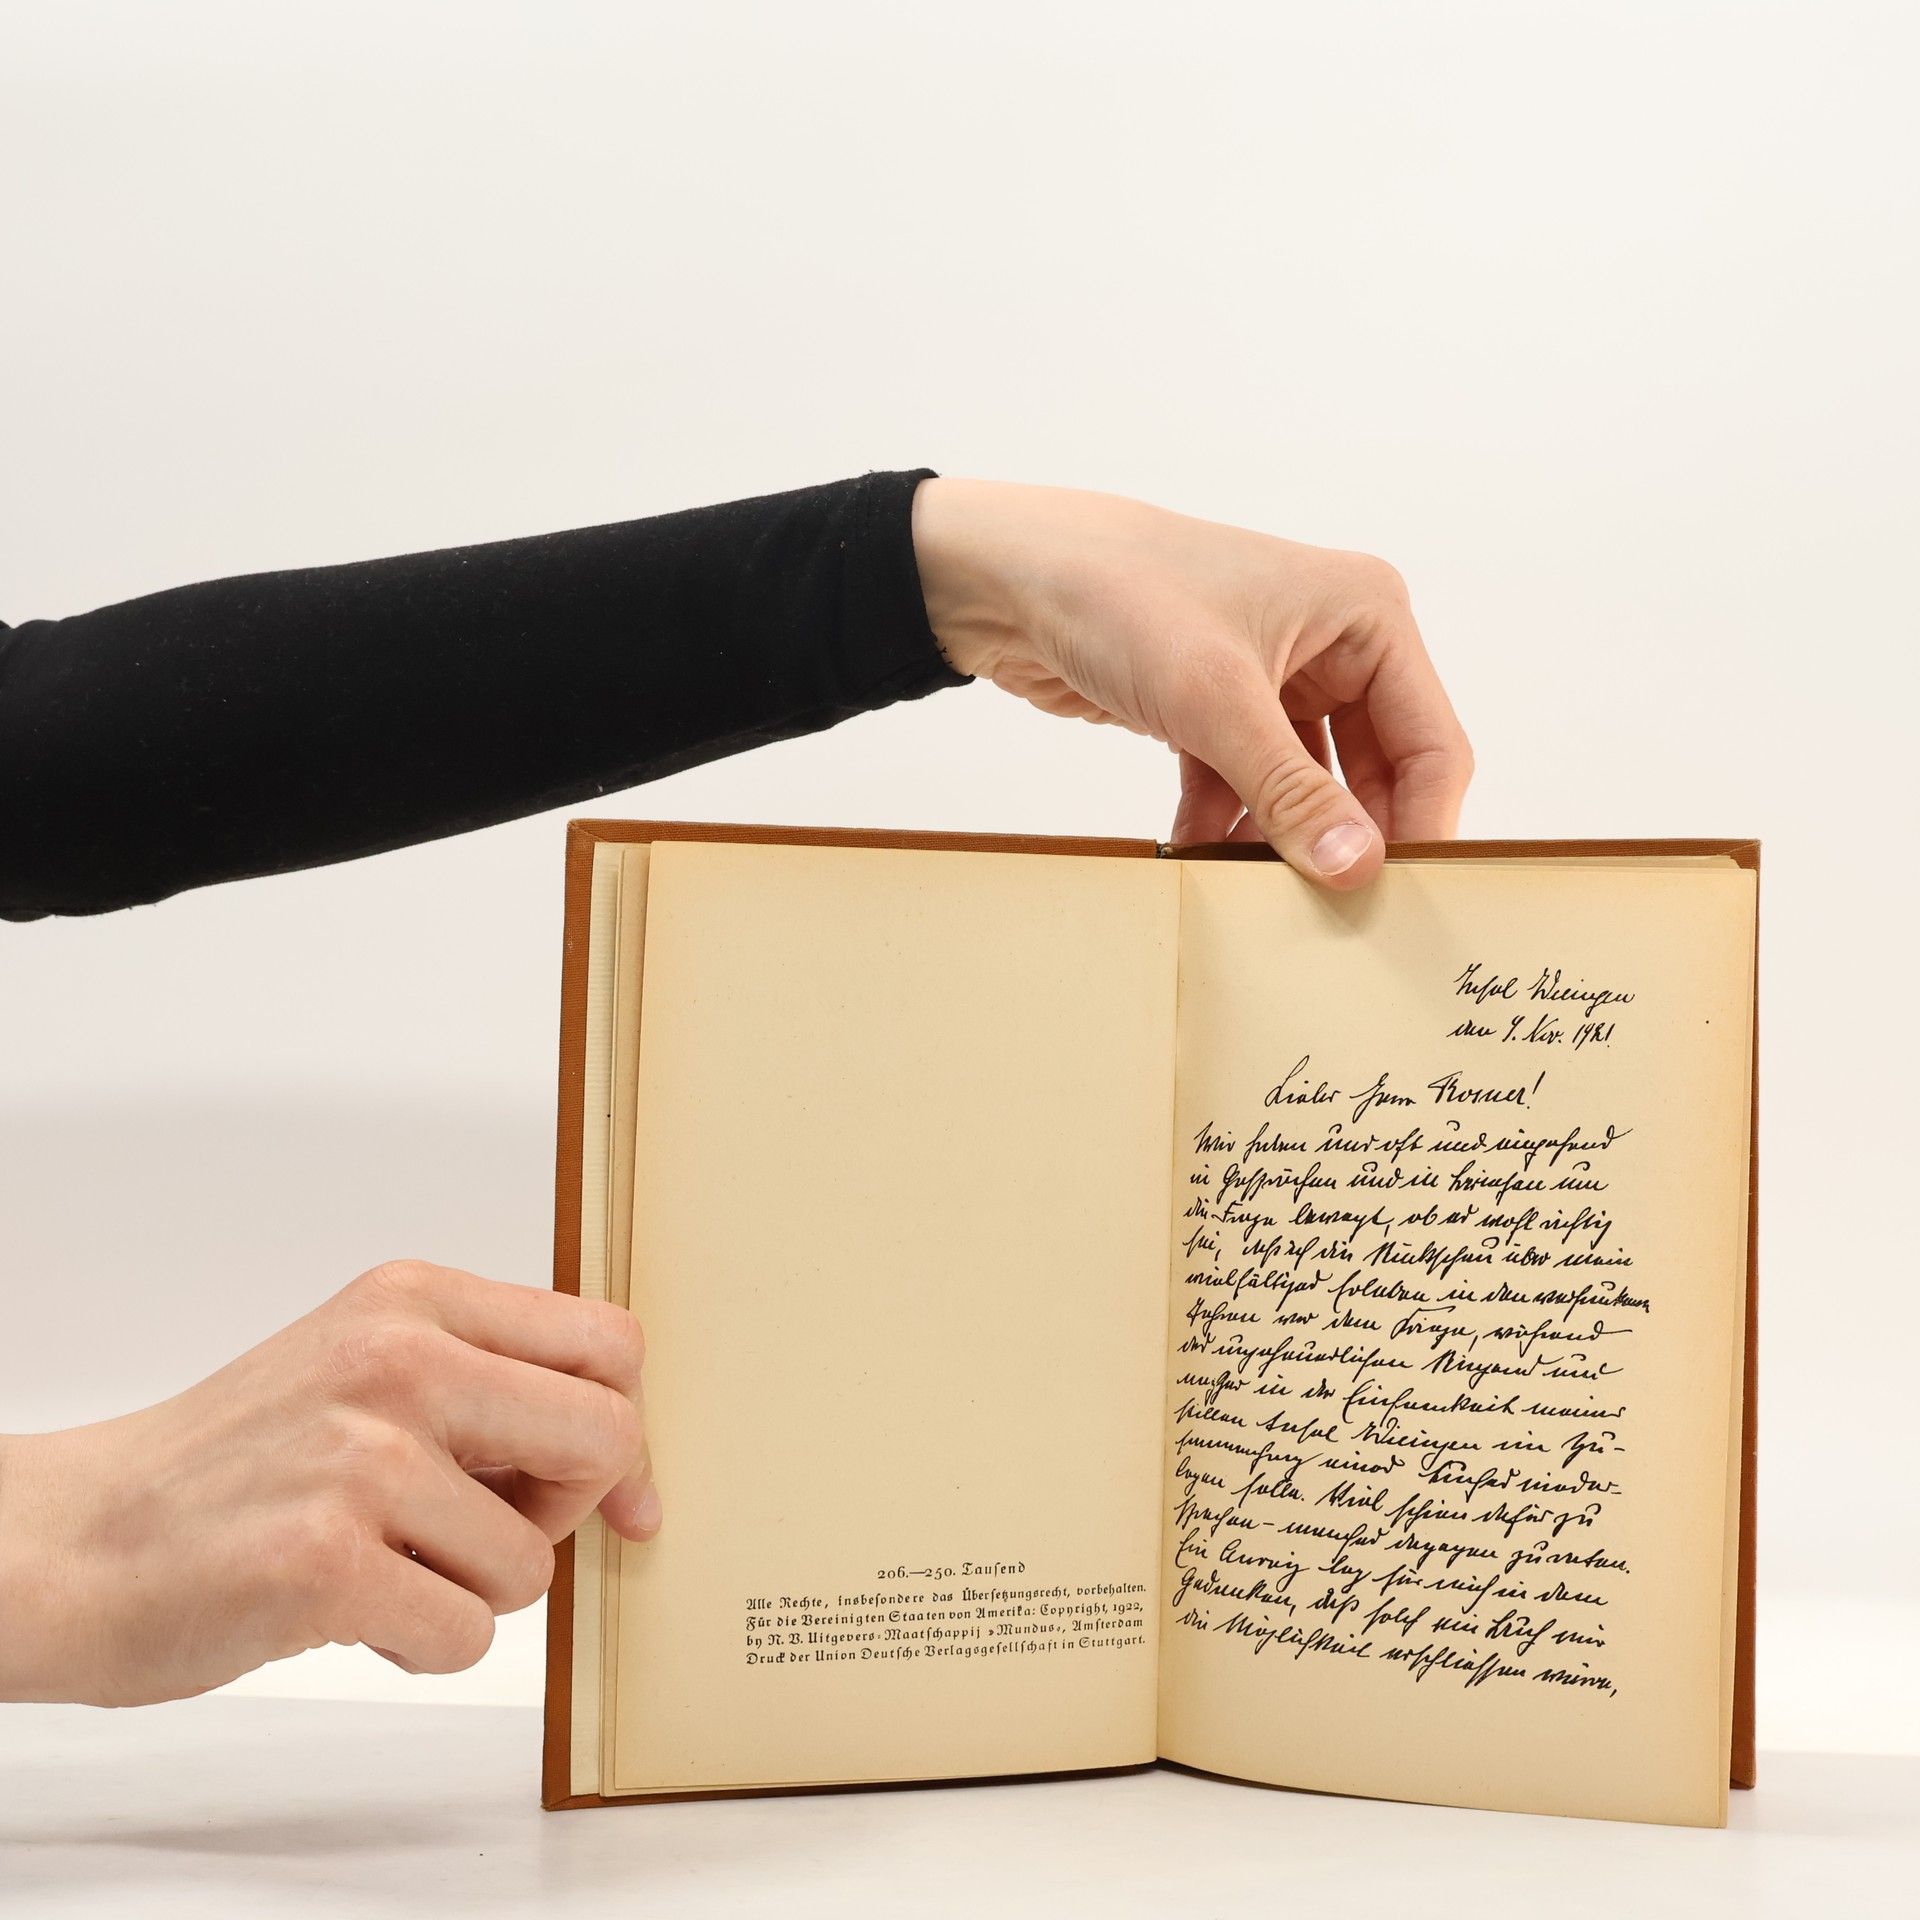 206.—250. Tausend
Alle Rechte, insbesondere das Übersetzungsrecht, vorbehalten.
Für die Vereinigten Staaten von Amerika: Copyright, 1922,
by N. V. Uitgevers-Maatschappij »Mundus«, Amsterdam
Druck der Union Deutsche Verlagsgesellschaft in Stuttgart.
Insel Wieringen
den 4. Nov. 1921.
Lieber Herr Rosner!
Wir haben uns oft und eingehend
in Gesprächen und in Briefen um
die Frage bewegt, ob es wohl richtig
sei, daß ich die Rückschau über mein
vielfältiges Erleben in den versunkenen
Jahren vor dem Kriege, während
des ungeheuerlichen Ringens und
nachher in der Einsamkeit meiner
stillen Insel Wieringen im Zu-
sammenhang eines Buches nieder-
legen solle. Viel schien dafür zu
sprechen – manches dagegen zu raten.
Ein Anreiz lag für mich in dem
Gedanken, daß solch ein Buch mir
die Möglichkeit erschliessen würde,